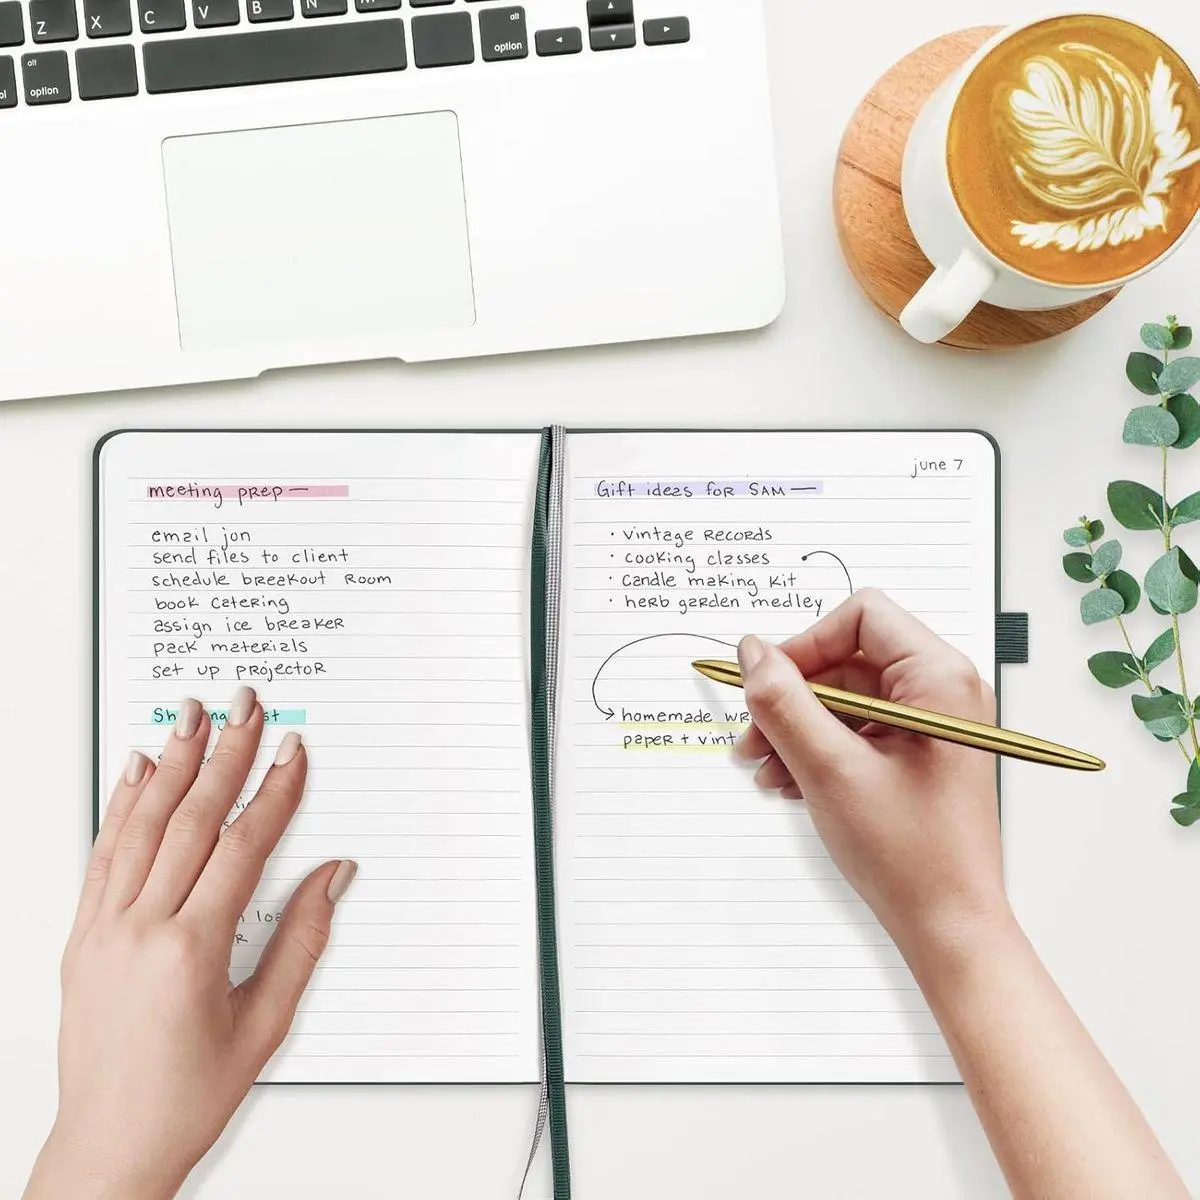 Z X C V B N M
alt option
alt option
meeting prep —
email jon
send files to client
schedule breakout room
book catering
assign ice breaker
pack materials
set up projector
june 7
Gift ideas for Sam —
• vintage records
• cooking classes
• candle making kit
• herb garden medley
homemade
paper +